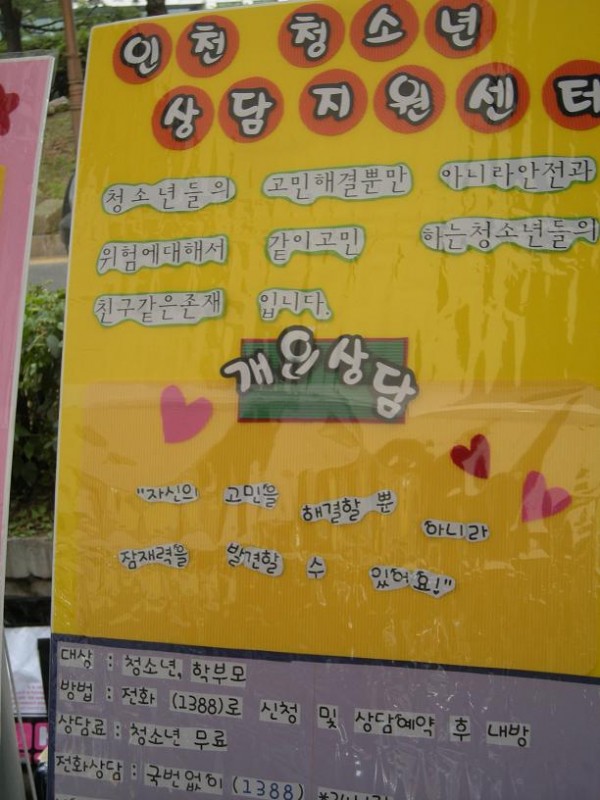 인천 청소년
상담지원센터
청소년들의 고민해결뿐만 아니라안전과
위험에대해서 같이고민 하는청소년들의
친구같은존재 입니다.
개인상담
"자신의 고민을 해결할 뿐 아니라
잠재력을 발견할 수 있어요!"
대상 : 청소년, 학부모
방법 : 전화 (1388)로 신청 및 상담예약 후 내방
상담료 : 청소년 무료
전화상담 : 국번없이 (1388)